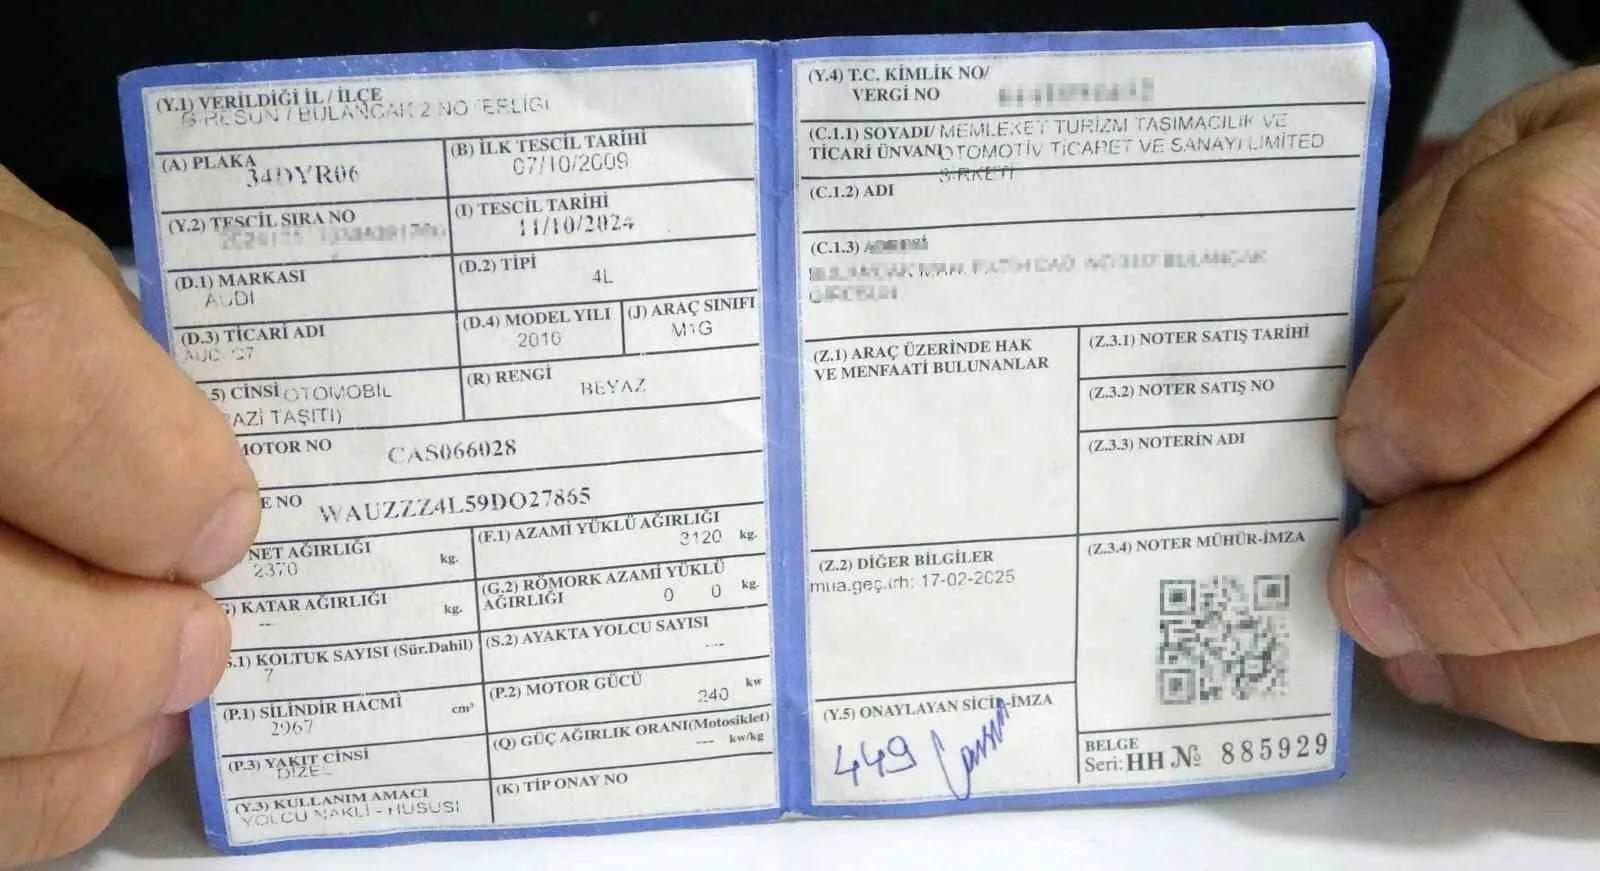 (Y.1) VERİLDİĞİ İL / İLÇE
GİRESUN / BULANCAK 2 NOTERLİĞİ
(A) PLAKA
34DYR06
(B) İLK TESCİL TARİHİ
07/10/2009
(Y.2) TESCİL SIRA NO
(I) TESCİL TARİHİ
11/10/2024
(D.1) MARKASI
AUDI
(D.2) TİPİ
4L
(D.3) TİCARİ ADI
AUDI Q7
(D.4) MODEL YILI
2010
(J) ARAÇ SINIFI
M1G
5) CİNSİ OTOMOBİL
AZİ TAŞITI)
(R) RENGİ
BEYAZ
MOTOR NO
CAS066028
E NO
WAUZZZ4L59DO27865
NET AĞIRLIĞI
2370 kg.
(F.1) AZAMİ YÜKLÜ AĞIRLIĞI
3120 kg.
G) KATAR AĞIRLIĞI
--- kg.
(G.2) RÖMORK AZAMİ YÜKLÜ
AĞIRLIĞI 0 0 kg.
S.1) KOLTUK SAYISI (Sür.Dahil)
7
(S.2) AYAKTA YOLCU SAYISI
---
(P.1) SİLİNDİR HACMİ
2967 cm³
(P.2) MOTOR GÜCÜ
240 kw
(P.3) YAKIT CİNSİ
DİZEL
(Q) GÜÇ AĞIRLIK ORANI(Motosiklet)
--- kw/kg
(Y.3) KULLANIM AMACI
YOLCU NAKLİ - HUSUSİ
(K) TİP ONAY NO
(Y.4) T.C. KİMLİK NO/
VERGİ NO
(C.1.1) SOYADI/ MEMLEKET TURİZM TAŞIMACILIK VE
TİCARİ ÜNVANI OTOMOTİV TİCARET VE SANAYİ LİMİTED
ŞİRKETİ
(C.1.2) ADI
(C.1.3) ADRESİ
(Z.1) ARAÇ ÜZERİNDE HAK
VE MENFAATİ BULUNANLAR
(Z.3.1) NOTER SATIŞ TARİHİ
(Z.3.2) NOTER SATIŞ NO
(Z.3.3) NOTERİN ADI
(Z.2) DİĞER BİLGİLER
mua.geç.trh: 17-02-2025
(Z.3.4) NOTER MÜHÜR-İMZA
(Y.5) ONAYLAYAN SİCİL-İMZA
449
BELGE
Seri: HH № 885929